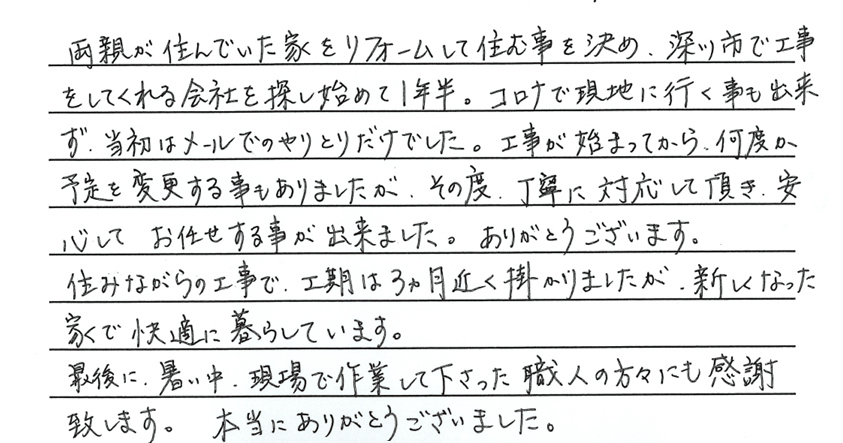 両親が住んでいた家をリフォームして住む事を決め、深川市で工事
をしてくれる会社を探し始めて1年半。コロナで現地に行く事も出来
ず、当初はメールでのやりとりだけでした。工事が始まってから、何度か
予定を変更する事もありましたが、その度、丁寧に対応して頂き、安
心して お任せする事が出来ました。ありがとうございます。
住みながらの工事で、工期は3ヵ月近く掛かりましたが、新しくなった
家くで快適に暮らしています。
最後に、暑い中、現場で作業して下さった職人の方々にも感謝
致します。 本当にありがとうございました。